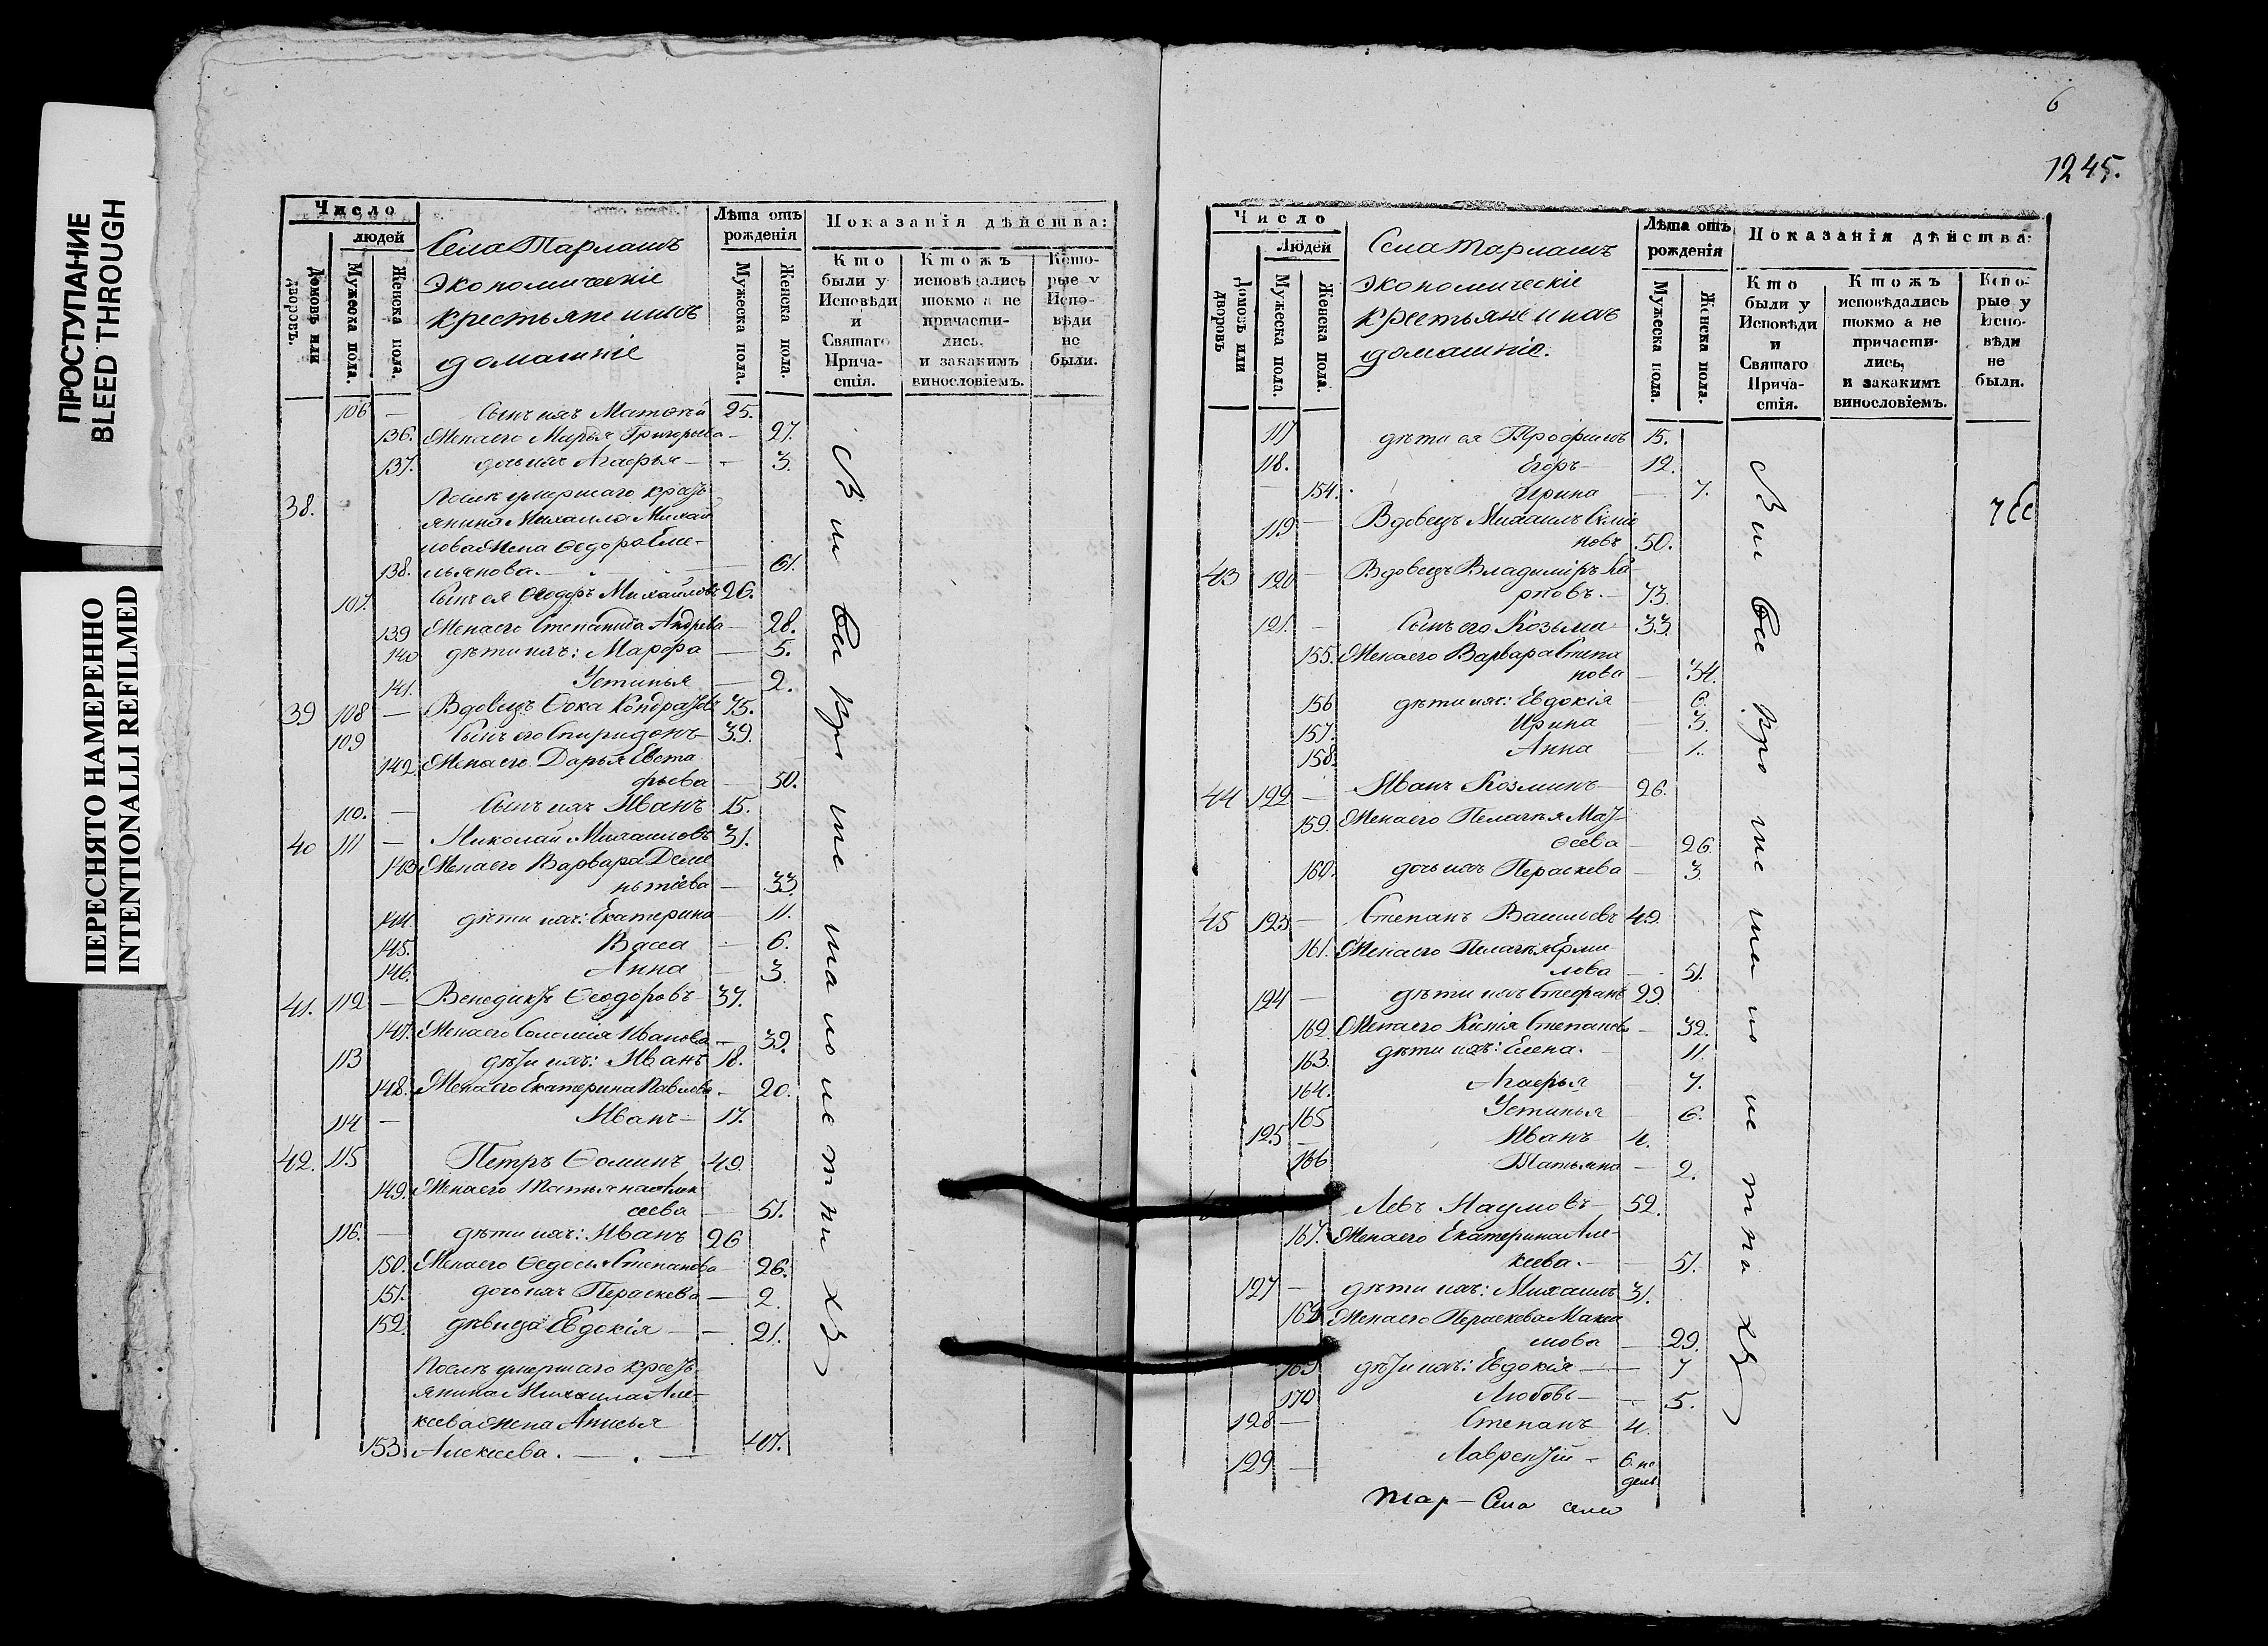 ПРОСТУПАНИЕ
BLEED THROUGH
ПЕРЕСНЯТО НАМЕРЕННО
INTENTIONALLI REFILMED
Число
людей
Домовъ или дворовъ.
Мужеска пола.
Женска пола.
Села Тарлашъ
экономическiе
крестьяне и ихъ
домашнiе
Лѣта отъ рожденiя
Мужеска пола.
Женска пола.
Показанiя дѣйства:
Кто были у Исповѣди и Святаго Прича-стiя.
Ктожъ исповѣдались токмо а не причасти-лись. и закакимъ винословiемъ.
Кото-рые у Испо-вѣди не были.
106 — Сынъ ихъ Матвѣй 25.
136. Жена его Марья Григорьева — 27.
137. дочь ихъ Агафья — 3.
38. Послѣ умершаго крестъ
янина Михаила Михай
лова жена Ѳедора Еме-
138. льянова. — 61.
107. Сынъ ея Ѳеодоръ Михайловъ 26.
139 Жена его Степанида Андрева — 28.
140 дѣти ихъ: Марфа — 5.
141. Устинья — 2.
39 108 — Вдовецъ Ѳока Кондратовъ 75.
109 Сынъ его Спиридонъ 39.
142. Жена его Дарья Евста
фьева — 50.
110. — Сынъ ихъ Иванъ 15.
40 111 — Николай Михаиловъ 31.
143 Жена его Варвара Деме
нтiева — 33.
144. дѣти ихъ: Екатерина 11.
145. Васса — 6.
146. Анна — 3.
41. 112 — Венедиктъ Ѳеодоровъ 37.
147. Жена его Соломiя Иванова — 39.
113 дѣти ихъ: Иванъ 18.
148. Жена его Екатерина Павлова — 20.
114 — Иванъ — 17.
42. 115 Петръ Ѳоминъ 49.
149. Жена его Татьяна Алек
сеева — 51.
116. — дѣти ихъ: Иванъ 26
150. Жена его Ѳедосья Степанова 26.
151. дочь ихъ Пераскева — 2.
152. дѣвица Евдокiя — 21.
Послѣ умершаго крестъ
янина Михаила Але-
ксева жена Анисья
153. Алексева. —
Вси вы ше на по ле тни хъ
6
1245.
Число
Людей
Домовъ или дворовъ
Мужеска пола.
Женска пола.
Села Тарлашъ
экономическiе
крестьяне и ихъ
домашнiе.
Лѣта отъ рожденiя
Мужеска пола.
Женска пола.
Показанiя дѣйства:
Кто были у Исповѣди и Святаго Прича-стiя.
Ктожъ исповѣдались токмо а не причасти-лись, и закакимъ винословiемъ.
Кото-рые у Испо-вѣди не были.
117 дѣти ея Трофимъ 15.
118. Егоръ — 12.
154. Ирина — 7.
119 — Вдовецъ Михаилъ
50.
43 120 — Вдовецъ Владимiръ Ка-
рповъ. — 73.
121. — Сынъ его Козьма 33.
155. Жена его Варвара Степа
нова — 34.
156 дѣти ихъ: Евдокiя — 6.
157. Ирина — 3.
158. Анна — 1.
44 122 — Иванъ Козминъ 26.
159. Жена его Пелагея Мат
ѳеева — 26.
160. дочь ихъ Пераскева — 3.
45 123 — Степанъ Васильевъ 49.
161. Жена его Пелагея Ерми
лова — 51.
124 — дѣти ихъ Стефанъ 29.
162. Жена его Ксенiя Степанова — 32.
163. дѣти ихъ: Елена. — 11.
164. Агафья — 7.
165 Устинья — 6.
125 — Иванъ 4.
166 Татьяна — 2.
Левъ Наумовъ — 52.
167. Жена его Екатерина Але-
ксева. — 51.
127 — дѣти ихъ: Михаилъ 31.
168 Жена его Пераскева Макси
мова — 29.
169 дѣти ихъ: Евдокiя — 7
170 Любовь — 5.
128 — Степанъ 4.
129 — Лаврентiй — 6. не
дель